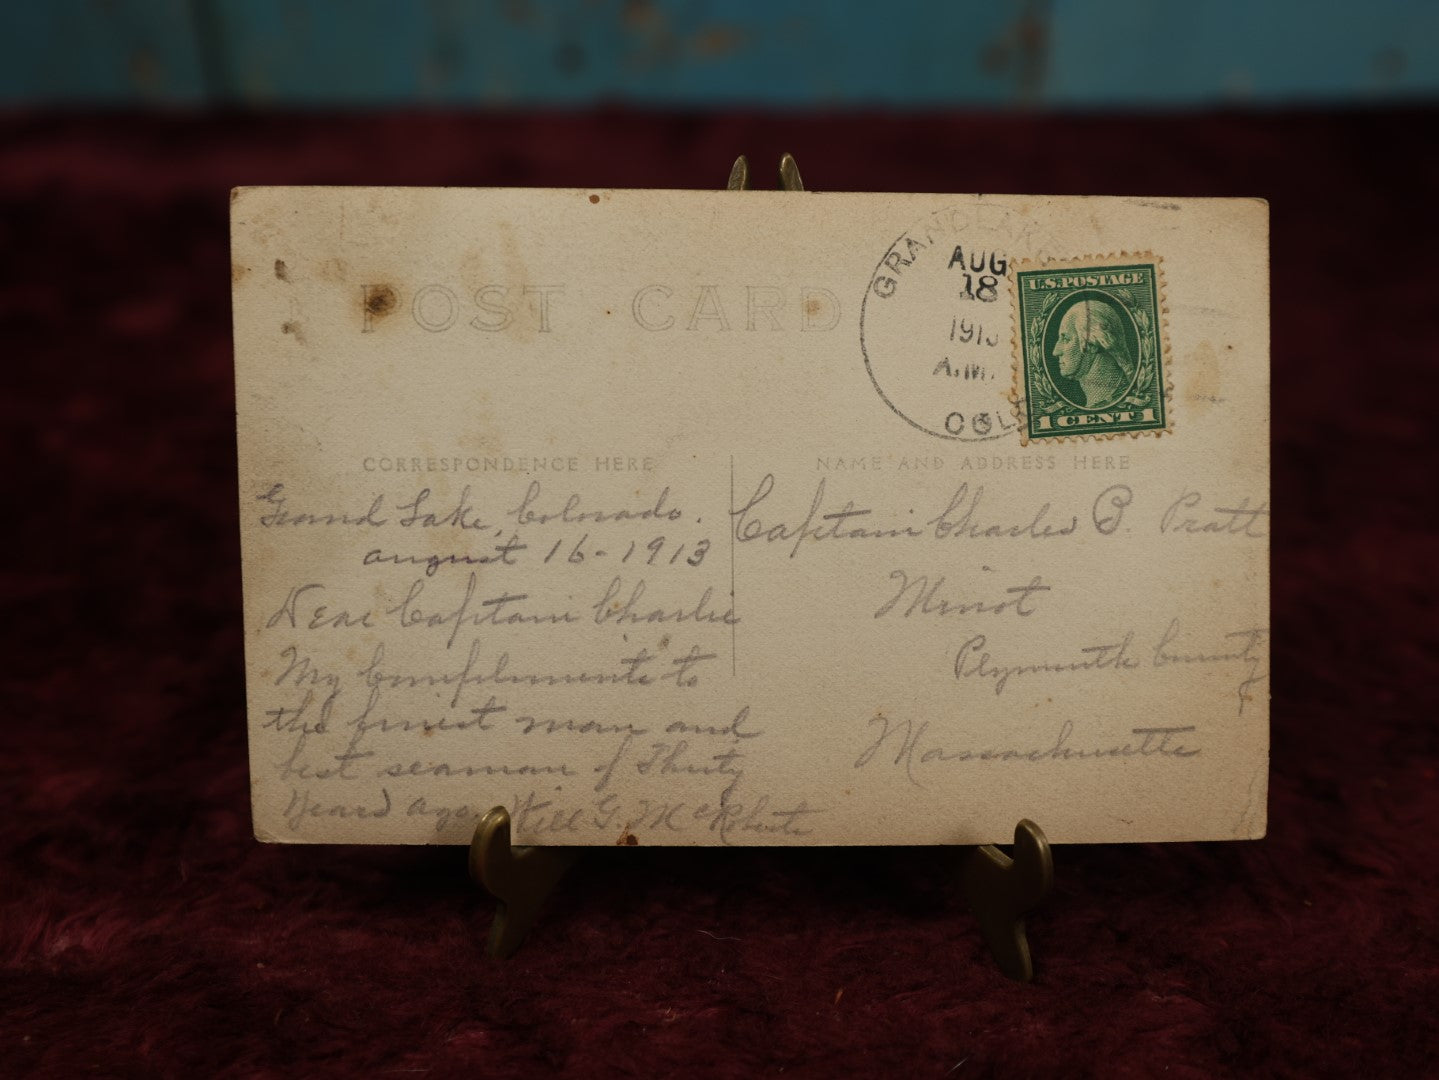 POST CARD
GRAND LAKE
AUG
18
1913
A.M.
COLO.
U.S. POSTAGE
1 CENT 1
CORRESPONDENCE HERE
NAME AND ADDRESS HERE
Grand Lake, Colorado.
August 16-1913
Dear Captain Charlie
My Compliments to
the finest man and
best seaman of Thirty
Years ago. Will G. McRoberts
Captain Charles B. Pratt
Minot
Plymouth County
Massachusetts